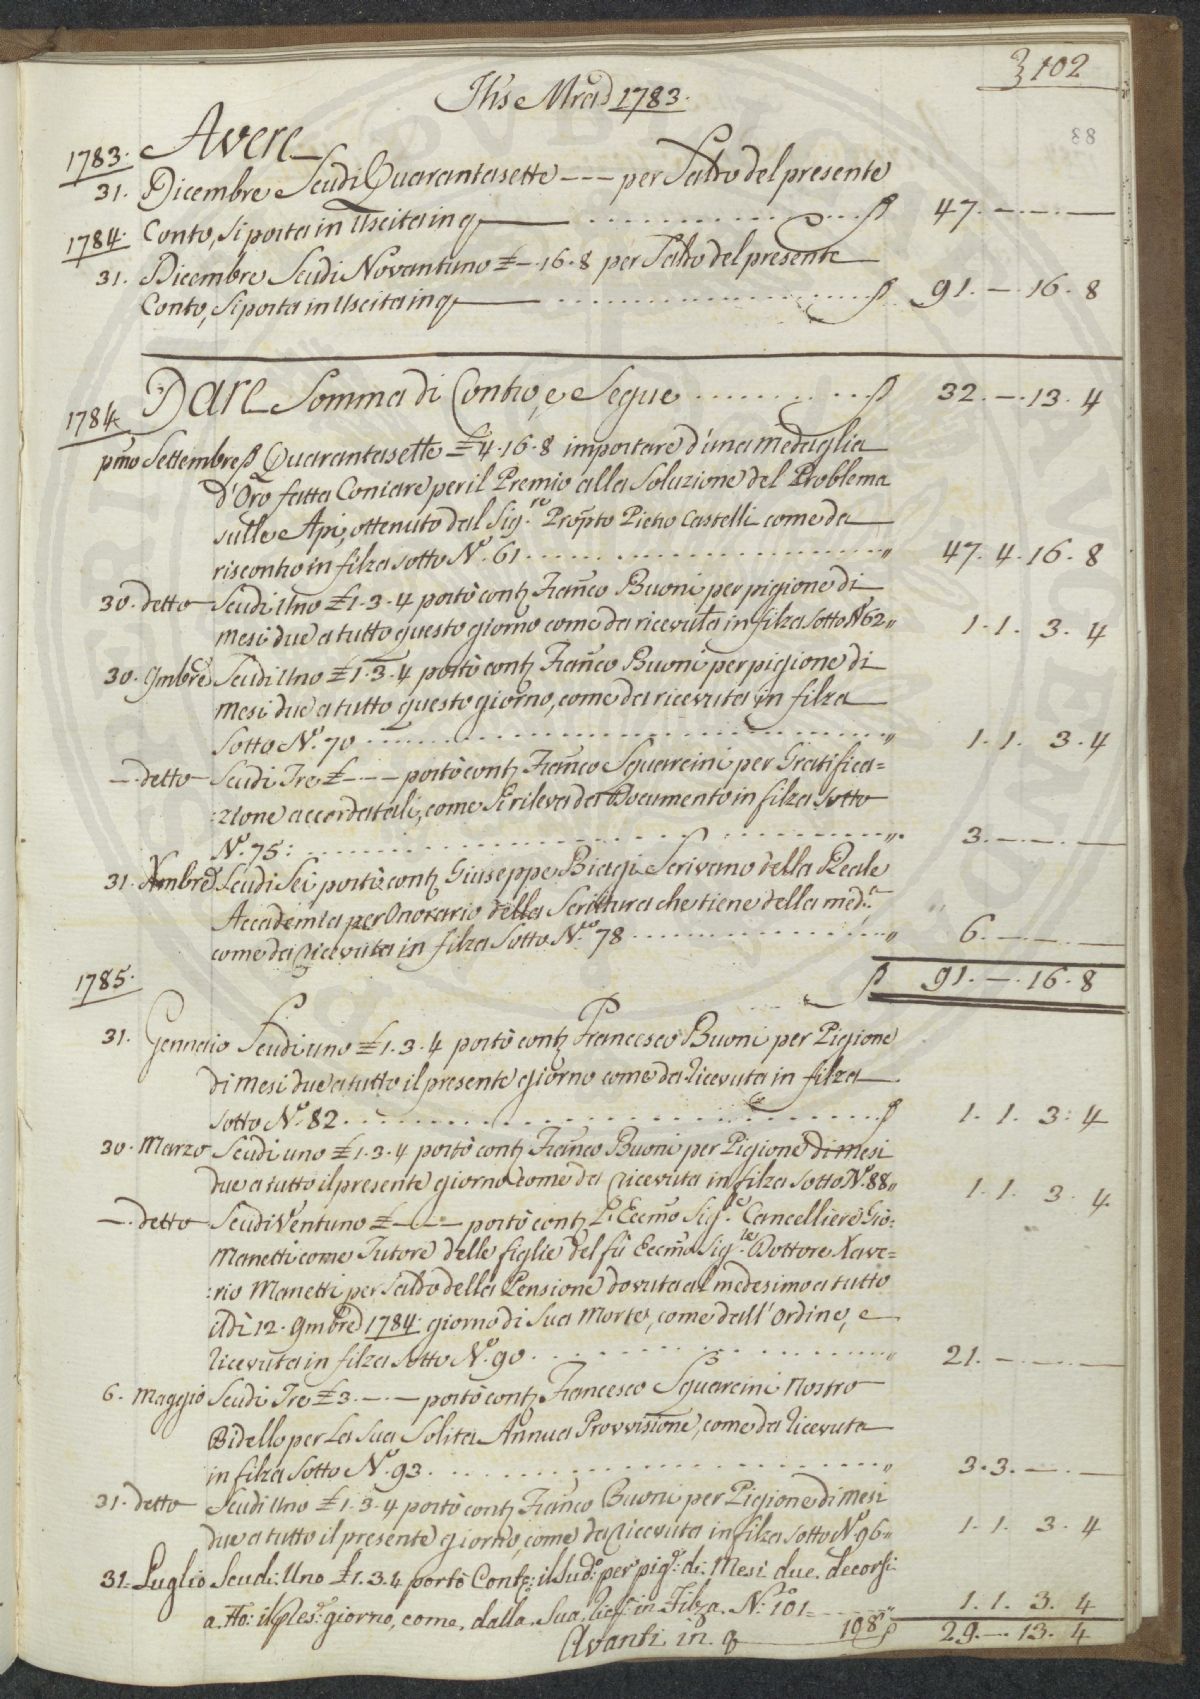 102
Ihs Mrad 1783.
88
Avere
1783.
31. Dicembre Scudi Quarantasette - - - per Saldo del presente
Conto, si porta in Uscita in q 47. — . — . —
1784.
31. Dicembre Scudi Novantuno £ — . 16 . 8 per Saldo del presente
Conto, si porta in Uscita in q 91. — . 16 . 8
Dare Somma di Contro, e Segue 32. — . 13 . 4
1784.
pmo Settembre Quarantasette £ 4 . 16 . 8 importare d'una medaglia
d'Oro fatta Coniare per il Premio alla Soluzione del Problema
sulle Api, ottenuto dal Sig.re Propto Pietro Castelli come da
riscontro in filza sotto N.o 61 " 47. 4 . 16 . 8
30. detto Scudi Uno £ 1 . 3 . 4 portò contj Franco Buoni per pigione di
mesi due a tutto questo giorno come da ricevuta in filza sotto N. 62 " 1 . 1 . 3 . 4
30. 9mbre Scudi Uno £ 1 . 3 . 4 portò contj Franco Buoni per pigione di
mesi due a tutto questo giorno, come da ricevuta in filza
sotto N.o 70 " 1 . 1 . 3 . 4
— . detto Scudi Tre £ - - - portò contj Franco Squarcini per Gratifica=
:zione accordatali, come si rileva da Documento in filza sotto
N.o 75: " 3. — . — . —
31. Xmbre Scudi Sei portò contj Giuseppe Biagi Scrivano della Reale
Accademia per Onorario della Scrittura che tiene della med.a
come da ricevuta in filza sotto N.o 78 " 6. — . — . —
91. — . 16 . 8
1785.
31. Gennaio Scudi uno £ 1 . 3 . 4 portò contj Francesco Buoni per Pigione
di mesi due a tutto il presente giorno come da ricevuta in filza
sotto N.o 82 1 . 1 . 3 : 4
30. Marzo Scudi uno £ 1 . 3 . 4 portò contj Franco Buoni per Pigione di mesi
due a tutto il presente giorno come da ricevuta in filza sotto N.o 88 " 1 . 1 . 3 . 4
— . detto Scudi Ventuno £ - - - portò contj L'Eccmo Sig.re Cancelliere Gio:
Manetti come Tutore delle figlie del fù Eccmo Sig.re Dottore Xave=
:rio Manetti per saldo della Pensione dovuta al medesimo a tutto
il dì 12. 9mbre 1784. giorno di Sua Morte, come dall' Ordine, e
ricevuta in filza sotto N.o 90 " 21. — . — . —
6. Maggio Scudi Tre £ 3 . — . — portò contj Francesco Squarcini Nostro
Bidello per La Sua Solita Annua Provvisione, come da ricevuta
in filza sotto N.o 93 " 3 . 3 . — . —
31. detto Scudi Uno £ 1 . 3 . 4 portò contj Franco Buoni per Pigione di mesi
due a tutto il presente giorno, come da ricevuta in filza sotto N.o 96 " 1 . 1 . 3 . 4
31. Luglio Scudi Uno £ 1 . 3 . 4 portò Contj: il Sud.o per pig.e di Mesi due decorsi
a tto: il Pres.e giorno, come dalla Sua ric. in Filza N.o 101 " 1 . 1 . 3 . 4
Avanti in q 108 29. — . 13 . 4